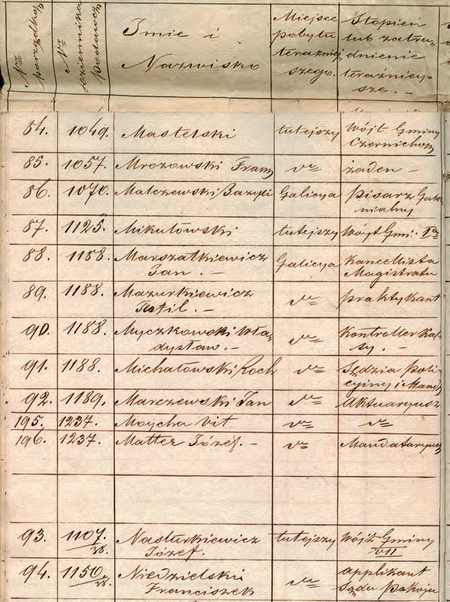 Nro porządkowy
Nro dziennika podawczego
Imie i Nazwisko
Miejsce pobytu teraźniejszego
Stopień lub zatrudnienie teraźniejsze. —
84. 1049. Mastelski tutejszy Wójt Gminy
Czernichow
85. 1057. Mrozowski Franz dto żaden —
86. 1070. Malczewski Bazyli Galicya pisarz Gubernialny
87. 1125. Mikułowski tutejszy Wójt Gmi.
88. 1158. Marszałkiewicz Galicya Kancellista
Jan. — Magistratu
89. 1188. Mazurkiewicz dto praktykant
Teofil. —
90. 1188. Myczkowski Wła- dto Kontroller Kas-
dysław. — sy. —
91. 1188. Michałowski Roch dto Sędzia poli-
cyjny
92. 1189. Marczewski Jan dto Aktuaryusz
195. 1237. Moycha Vit dto dto
196. 1237. Matter Józef. — dto Mandataryusz
93. 1107. Nasturkiewicz tutejszy Wójt Gminy
Józef. VII
94. 1150. Niedzielski dto applikant
Franciszek Sądu pokoju